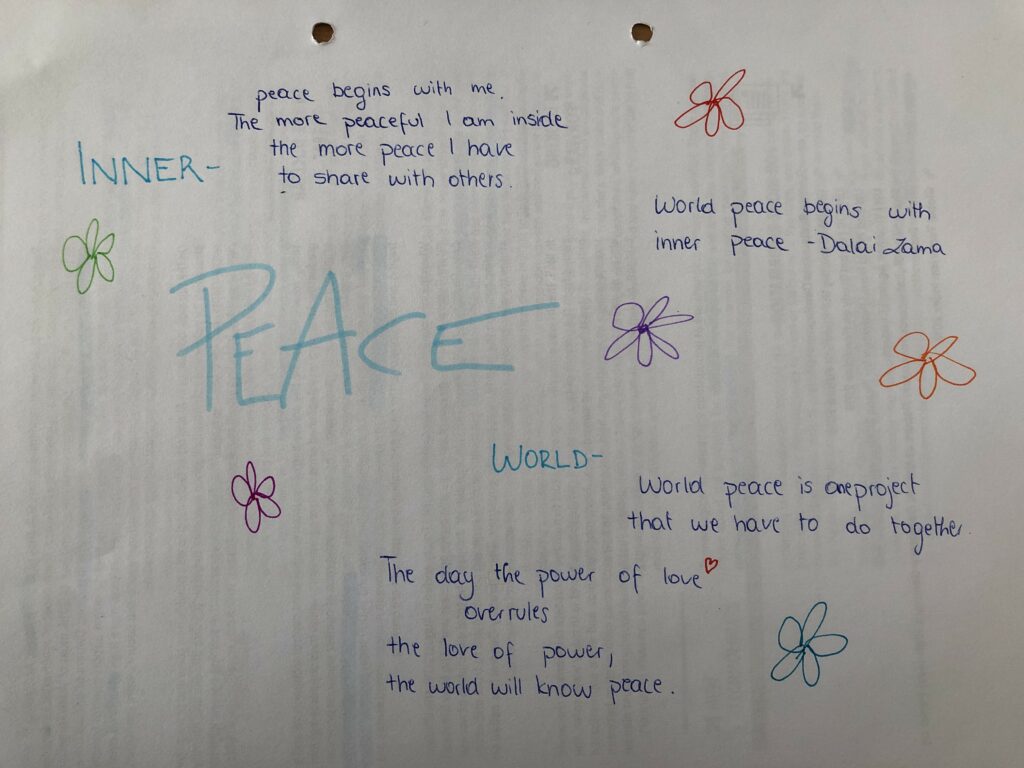 peace begins with me.
The more peaceful I am inside
the more peace I have
to share with others.
INNER-
World peace begins with
inner peace - Dalai Lama
PEACE
WORLD-
World peace is one project
that we have to do together.
The day the power of love
overrules
the love of power,
the world will know peace.